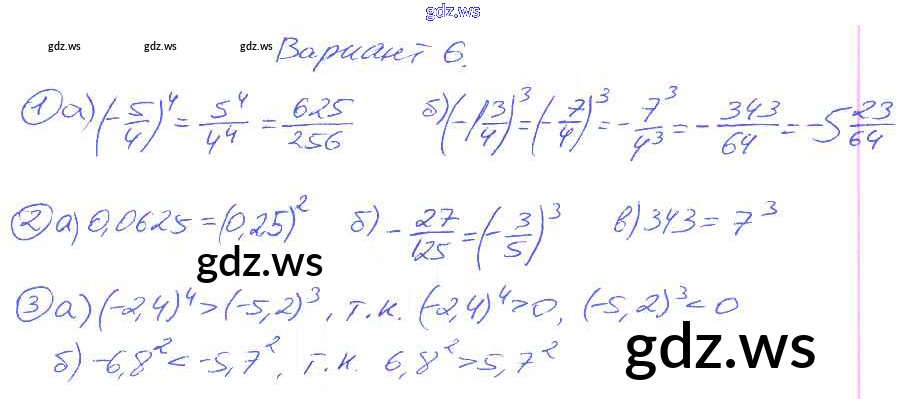 gdz.ws
gdz.ws gdz.ws gdz.ws Вариант 6.
① а) (-5/4)^4 = 5^4/4^4 = 625/256 б) (-1 3/4)^3 = (-7/4)^3 = -7^3/4^3 = -343/64 = -5 23/64
② а) 0,0625 = (0,25)^2 б) -27/125 = (-3/5)^3 в) 343 = 7^3
gdz.ws
③ а) (-2,4)^4 > (-5,2)^3, т.к. (-2,4)^4 > 0, (-5,2)^3 < 0
б) -6,8^2 < -5,7^2, т.к. 6,8^2 > 5,7^2
gdz.ws